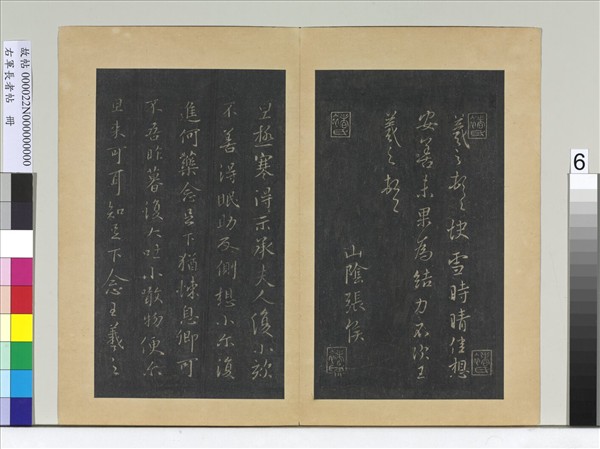 羲之頓首快雪時晴佳想
安善未果為結力不次王
羲之頓首
山陰張侯
旦極寒得示承夫人復小欬
不善得眠助反側想小尔復
進何藥念足下猶悚息卿可
不吾昨暮復大吐小噉物便尔
旦來可耳知足下念王羲之
故帖 000022N000000000
右軍長者帖 冊
6